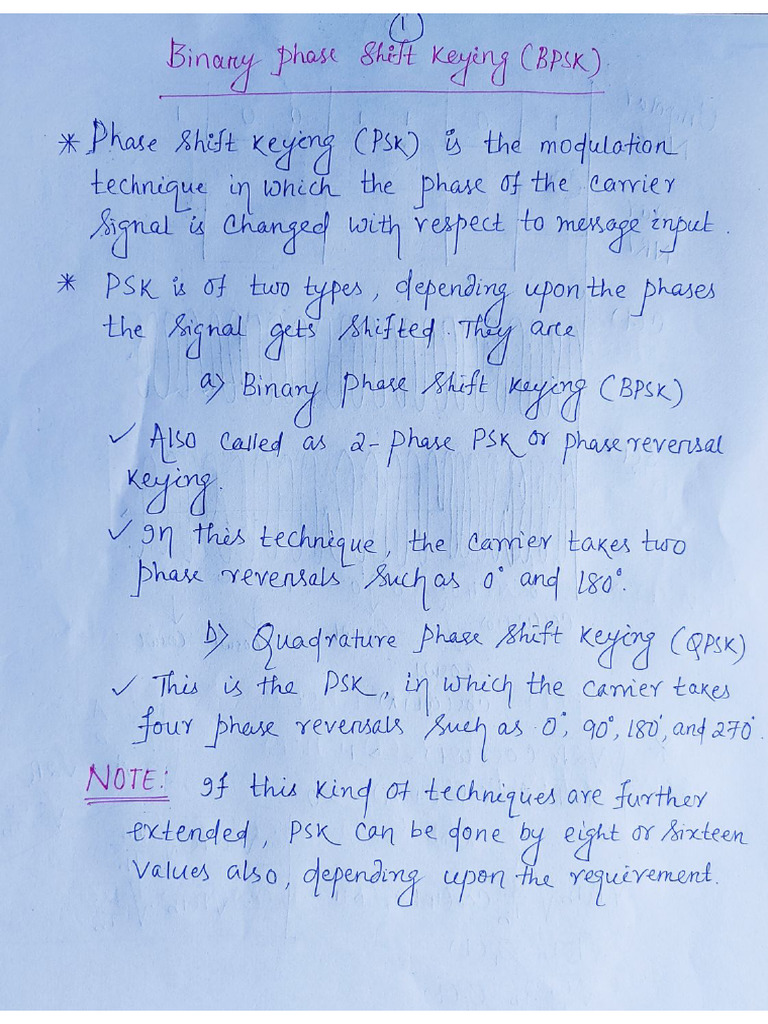 1
Binary Phase Shift Keying (BPSK)
* Phase Shift Keying (PSK) is the modulation
technique in which the phase of the carrier
signal is changed with respect to message input.
* PSK is of two types, depending upon the phases
the signal gets shifted. They are
a) Binary Phase Shift Keying (BPSK)
✓ Also called as 2-phase PSK or phase reversal
keying.
✓ In this technique, the carrier takes two
phase reversals such as 0° and 180°.
b) Quadrature Phase Shift Keying (QPSK)
✓ This is the PSK, in which the carrier takes
four phase reversals such as 0°, 90°, 180°, and 270°.
NOTE: If this kind of techniques are further
extended, PSK can be done by eight or sixteen
values also, depending upon the requirement.